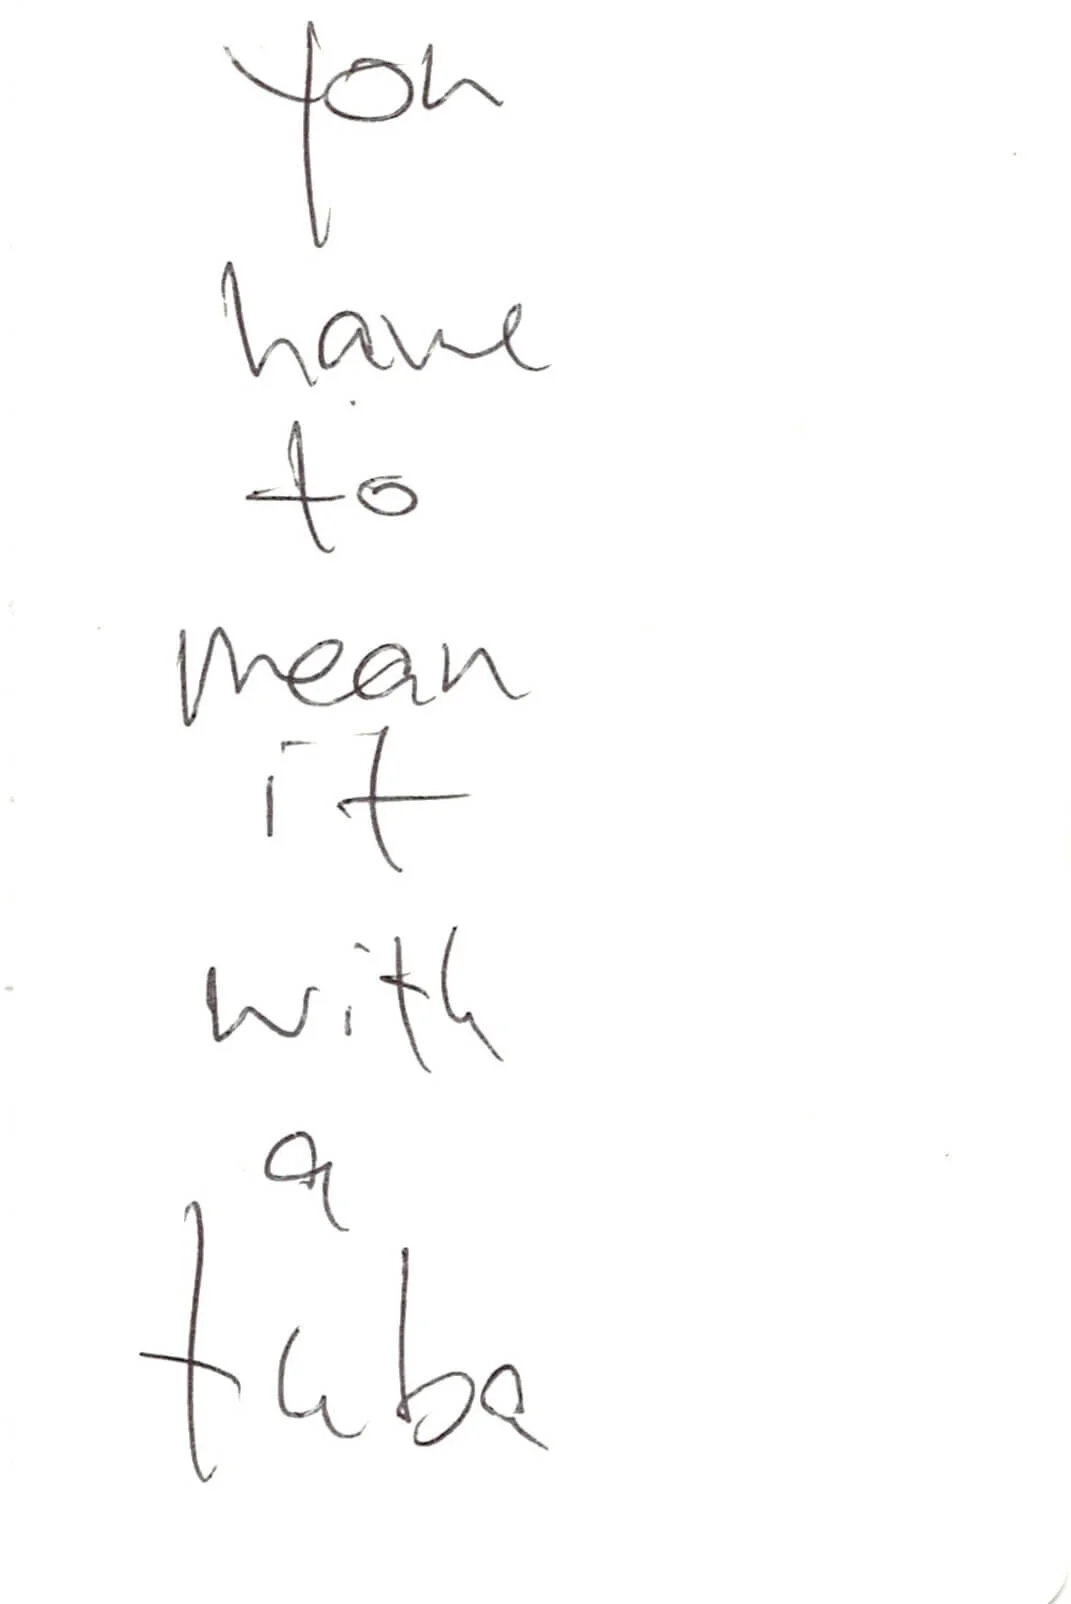 you
have
to
mean
it
with
a
tuba